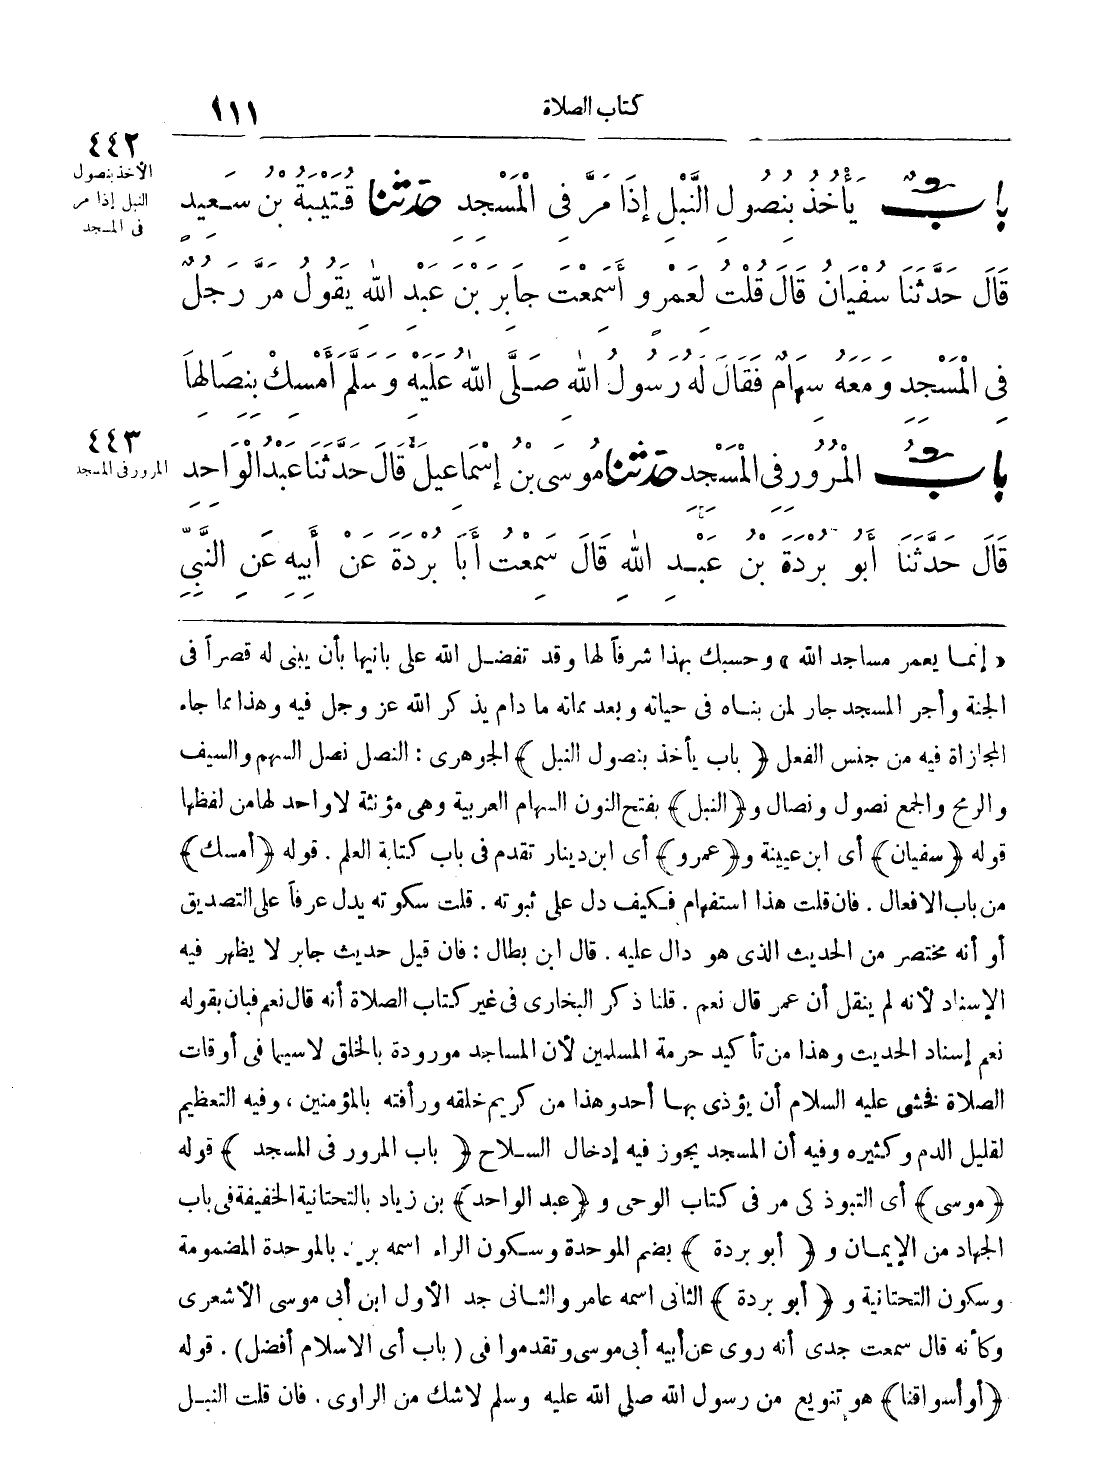 كتاب الصلاة ١١١
٤٤٢
الأخذ بنصول
النبل إذا مر
فى المسجد
بَابٌ يَأْخُذُ بِنُصُولِ النَّبْلِ إِذَا مَرَّ فِى الْمَسْجِدِ حَدَّثَنَا قُتَيْبَةُ بْنُ سَعِيدٍ
قَالَ حَدَّثَنَا سُفْيَانُ قَالَ قُلْتُ لِعَمْرٍو أَسَمِعْتَ جَابِرَ بْنَ عَبْدِ اللهِ يَقُولُ مَرَّ رَجُلٌ
فِى الْمَسْجِدِ وَمَعَهُ سِهَامٌ فَقَالَ لَهُ رَسُولُ اللهِ صَلَّى اللهُ عَلَيْهِ وَسَلَّمَ أَمْسِكْ بِنِصَالِهَا
٤٤٣
المرور فى المسجد
بَابُ الْمُرُورِ فِى الْمَسْجِدِ حَدَّثَنَا مُوسَى بْنُ إِسْمَاعِيلَ قَالَ حَدَّثَنَا عَبْدُ الْوَاحِدِ
قَالَ حَدَّثَنَا أَبُو بُرْدَةَ بْنُ عَبْدِ اللهِ قَالَ سَمِعْتُ أَبَا بُرْدَةَ عَنْ أَبِيهِ عَنِ النَّبِىِّ
« إنما يعمر مساجد الله » وحسبك بهذا شرفاً لها وقد تفضل الله على بانيها بأن يبنى له قصراً فى
الجنة وأجر المسجد جار لمن بناه فى حياته وبعد مماته ما دام يذكر الله عز وجل فيه وهذا مما جاء
المجازاة فيه من جنس الفعل ﴿ باب يأخذ بنصول النبل ﴾ الجوهرى : النصل نصل السهم والسيف
والرمح والجمع نصول ونصال و﴿النبل﴾ بفتح النون السهام العربية وهى مؤنثة لا واحد لها من لفظها
قوله ﴿سفيان﴾ أى ابن عيينة و﴿عمرو﴾ أى ابن دينار تقدم فى باب كتابة العلم . قوله ﴿أمسك﴾
من باب الافعال . فان قلت هذا استفهام فكيف دل على ثبوته . قلت سكوته يدل عرفاً على التصديق
أو أنه مختصر من الحديث الذى هو دال عليه . قال ابن بطال : فان قيل حديث جابر لا يظهر فيه
الإسناد لأنه لم ينقل أن عمر قال نعم . قلنا ذكر البخارى فى غير كتاب الصلاة أنه قال نعم فبان بقوله
نعم إسناد الحديث وهذا من تأكيد حرمة المسلمين لأن المساجد مورودة بالخلق لا سيما فى أوقات
الصلاة فخشى عليه السلام أن يؤذى بها أحد وهذا من كريم خلقه ورأفته بالمؤمنين ، وفيه التعظيم
لقليل الدم وكثيره وفيه أن المسجد يجوز فيه إدخال السلاح ﴿ باب المرور فى المسجد ﴾ قوله
﴿موسى﴾ أى التبوذكى مر فى كتاب الوحى و ﴿عبد الواحد﴾ بن زياد بالتحتانية الخفيفة فى باب
الجهاد من الإيمان و ﴿ أبو بردة ﴾ بضم الموحدة وسكون الراء اسمه بريد بالموحدة المضمومة
وسكون التحتانية و ﴿ أبو بردة ﴾ الثانى اسمه عامر والثانى جد الأول ابن أبى موسى الأشعرى
وكأنه قال سمعت جدى أنه روى عن أبيه أبى موسى وتقدموا فى ( باب أى الاسلام أفضل ) . قوله
﴿أو أسواقنا﴾ هو تنويع من رسول الله صلى الله عليه وسلم لا شك من الراوى . فان قلت النبل